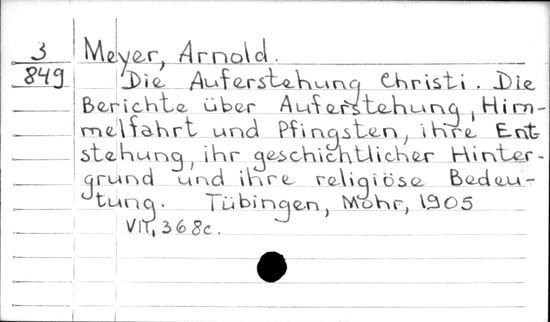 3 Meyer, Arnold.
849 Die Auferstehung Christi. Die
Berichte über Auferstehung, Him-
melfahrt und Pfingsten, ihre Ent
stehung, ihr geschichtlicher Hinter-
grund und ihre religiöse Bedeu-
tung. Tübingen, Mohr, 1905
VII, 368c.